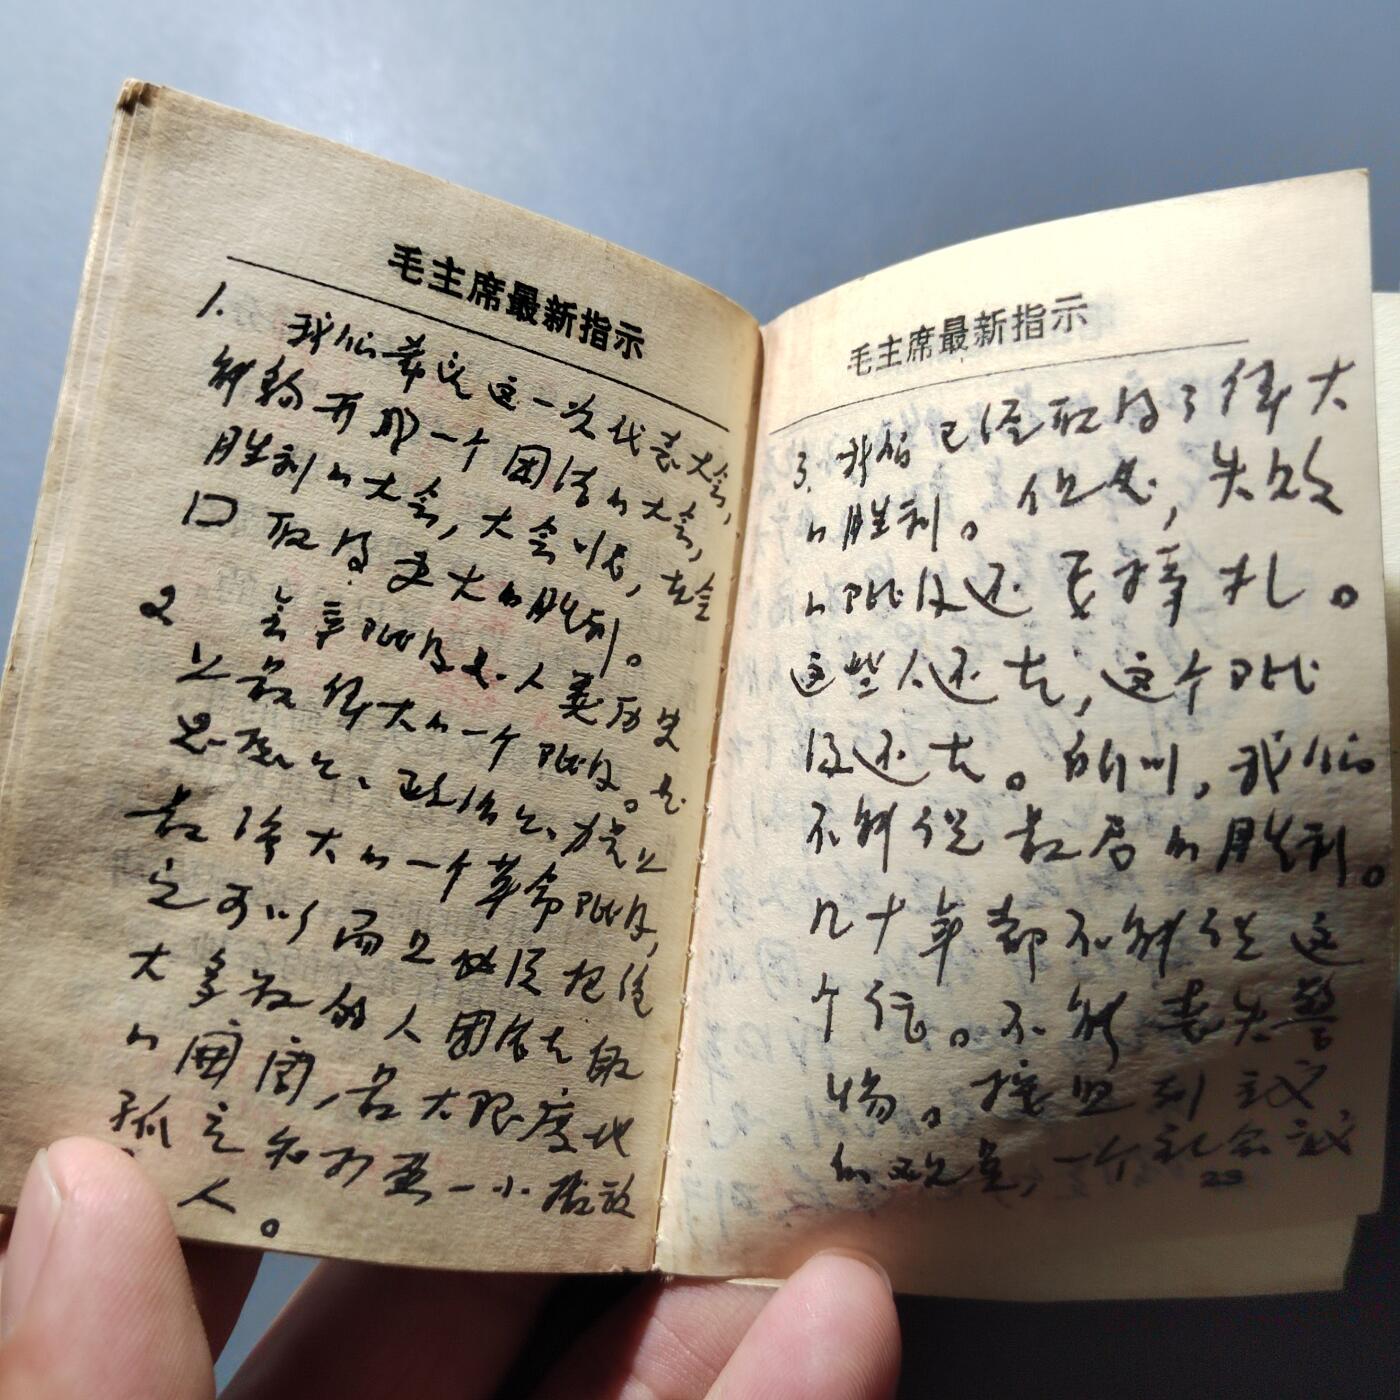 毛主席最新指示
1. 我们希望这一次代表大会,
能够开那一个团结的大会,
胜利的大会, 大会以后, 在全
口 取得更大的胜利。
2 无产阶级是人类历史
上最伟大的一个阶级。是
思想上、政治上、力量上
最强大的一个革命阶级,
它可以而且必须把绝
大多数的人团结在自己
的周围, 最大限度地
孤立和打击一小撮敌
人。
毛主席最新指示
3. 我们已经取得了伟大
的胜利。但是, 失败
的阶级还要挣扎。
这些人还在, 这个阶
级还在。所以, 我们
不能说最后的胜利。
几十年都不能说这
个话。不能丧失警
惕。按照列宁主义
的观点, 一个社会主义
23